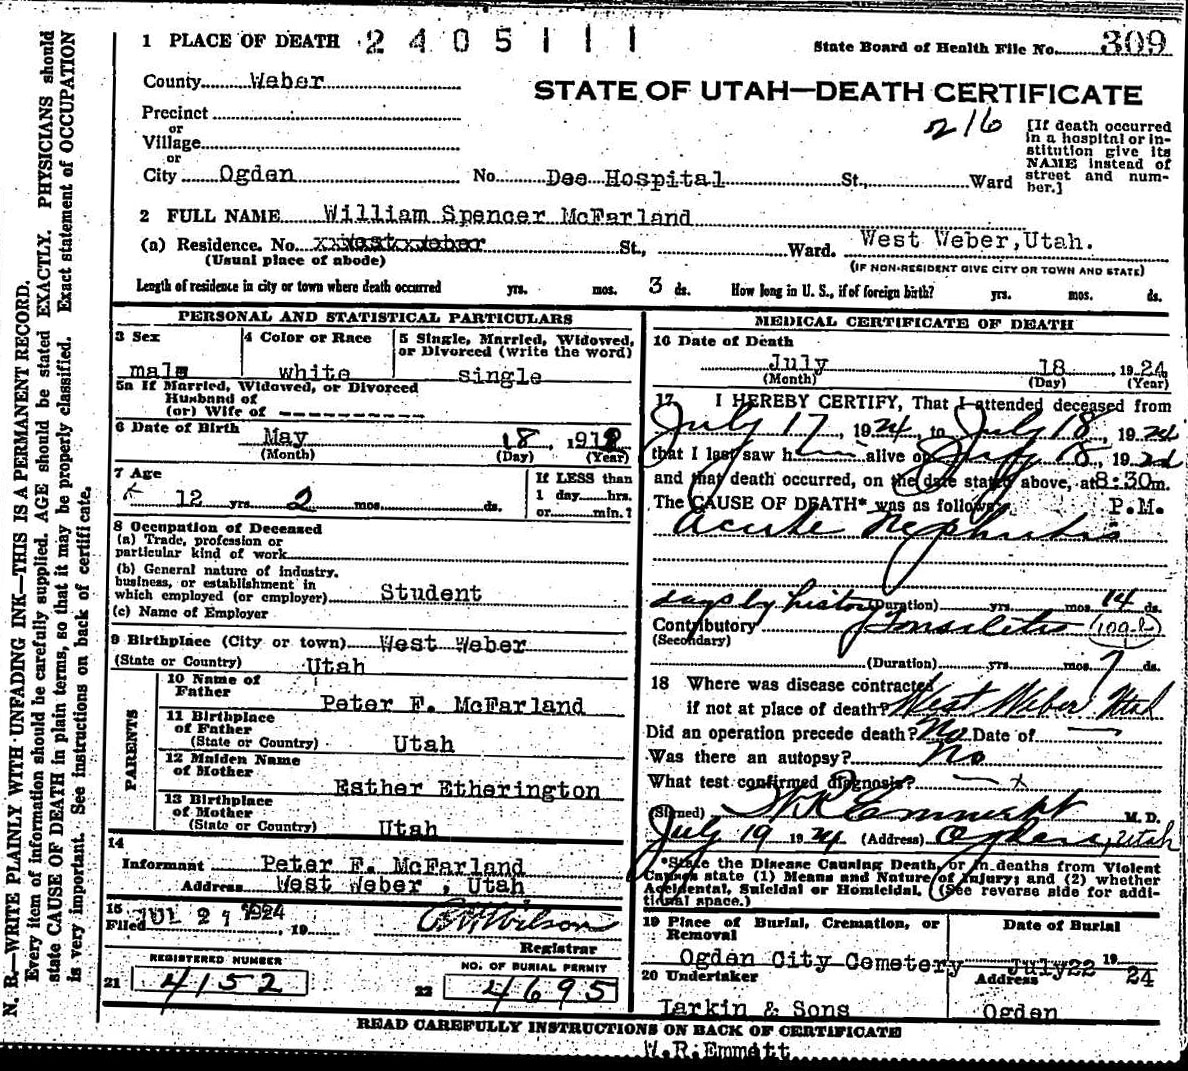 1 PLACE OF DEATH 2405111
State Board of Health File No. 309
County Weber
STATE OF UTAH—DEATH CERTIFICATE
Precinct
or
216
[If death occurred in a hospital or institution give its NAME instead of street and number.]
Village
or
City Ogden No. Dee Hospital St., Ward
2 FULL NAME William Spencer McFarland
(a) Residence. No. xxWestxxWeber St., Ward. West Weber, Utah.
(Usual place of abode) (IF NON-RESIDENT GIVE CITY OR TOWN AND STATE)
Length of residence in city or town where death occurred yrs. mos. 3 ds. How long in U. S., if of foreign birth? yrs. mos. ds.
PERSONAL AND STATISTICAL PARTICULARS
3 Sex 4 Color or Race 5 Single, Married, Widowed, or Divorced (write the word)
male white single
5a If Married, Widowed, or Divorced
Husband of
(or) Wife of
6 Date of Birth May 18, 191
(Month) (Day) (Year)
7 Age If LESS than
12 yrs. 2 mos. ds. 1 day hrs.
or min.?
8 Occupation of Deceased
(a) Trade, profession or
particular kind of work
(b) General nature of industry.
business, or establishment in
which employed (or employer) Student
(c) Name of Employer
9 Birthplace (City or town) West Weber
(State or Country) Utah
PARENTS
10 Name of
Father Peter F. McFarland
11 Birthplace
of Father
(State or Country) Utah
12 Maiden Name
of Mother
Esther Etherington
13 Birthplace
of Mother
(State or Country) Utah
14
Informant Peter F. McFarland
Address West Weber, Utah
15 JUL 21 1924
Filed , 19 Wilson
Registrar
REGISTERED NUMBER NO. OF BURIAL PERMIT
21 4152 22 4695
MEDICAL CERTIFICATE OF DEATH
16 Date of Death
July 18, 1924
(Month) (Day) (Year)
17 I HEREBY CERTIFY, That I attended deceased from
July 17, 1924, to July 18, 1924
that I last saw him alive on July 18, 1924
and that death occurred, on the date stated above, at 8:30 m.
The CAUSE OF DEATH* was as follows: P.M.
Acute Nephritis
days by history (Duration) yrs. mos. 14 ds.
Contributory Tonsilitis
(Secondary)
(Duration) yrs. mos. 7 ds.
18 Where was disease contracted
if not at place of death? West Weber Utah
Did an operation precede death? No Date of —
Was there an autopsy? No
What test confirmed diagnosis? — x
(Signed) W R Emmett M. D.
July 19 1924 (Address) Ogden, Utah
*State the Disease Causing Death, or in deaths from Violent
Causes state (1) Means and Nature of Injury; and (2) whether
Accidental, Suicidal or Homicidal. (See reverse side for addi-
tional space.)
19 Place of Burial, Cremation, or Date of Burial
Removal
Ogden City Cemetery July 22 19 24
20 Undertaker Address
Larkin & Sons Ogden
READ CAREFULLY INSTRUCTIONS ON BACK OF CERTIFICATE
W.R.Emmett
N. B.—WRITE PLAINLY WITH UNFADING INK—THIS IS A PERMANENT RECORD.
Every item of information should be carefully supplied. AGE should be stated EXACTLY. PHYSICIANS should
state CAUSE OF DEATH in plain terms, so that it may be properly classified. Exact statement of OCCUPATION
is very important. See instructions on back of certificate.